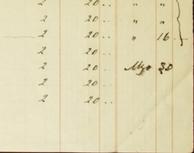 2 20 .. " "
2 20 .. " "
2 20 .. " 16
2 20 ..
2 20 .. 30
2 20 ..
2 20 ..